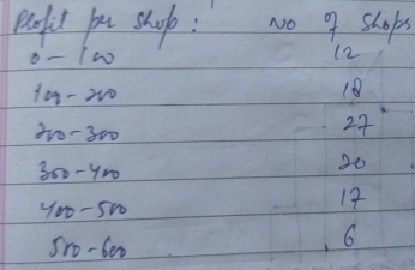 Profit per shop : No of Shops
0 - 100 12
100 - 200 18
200 - 300 27
300 - 400 20
400 - 500 17
500 - 600 6